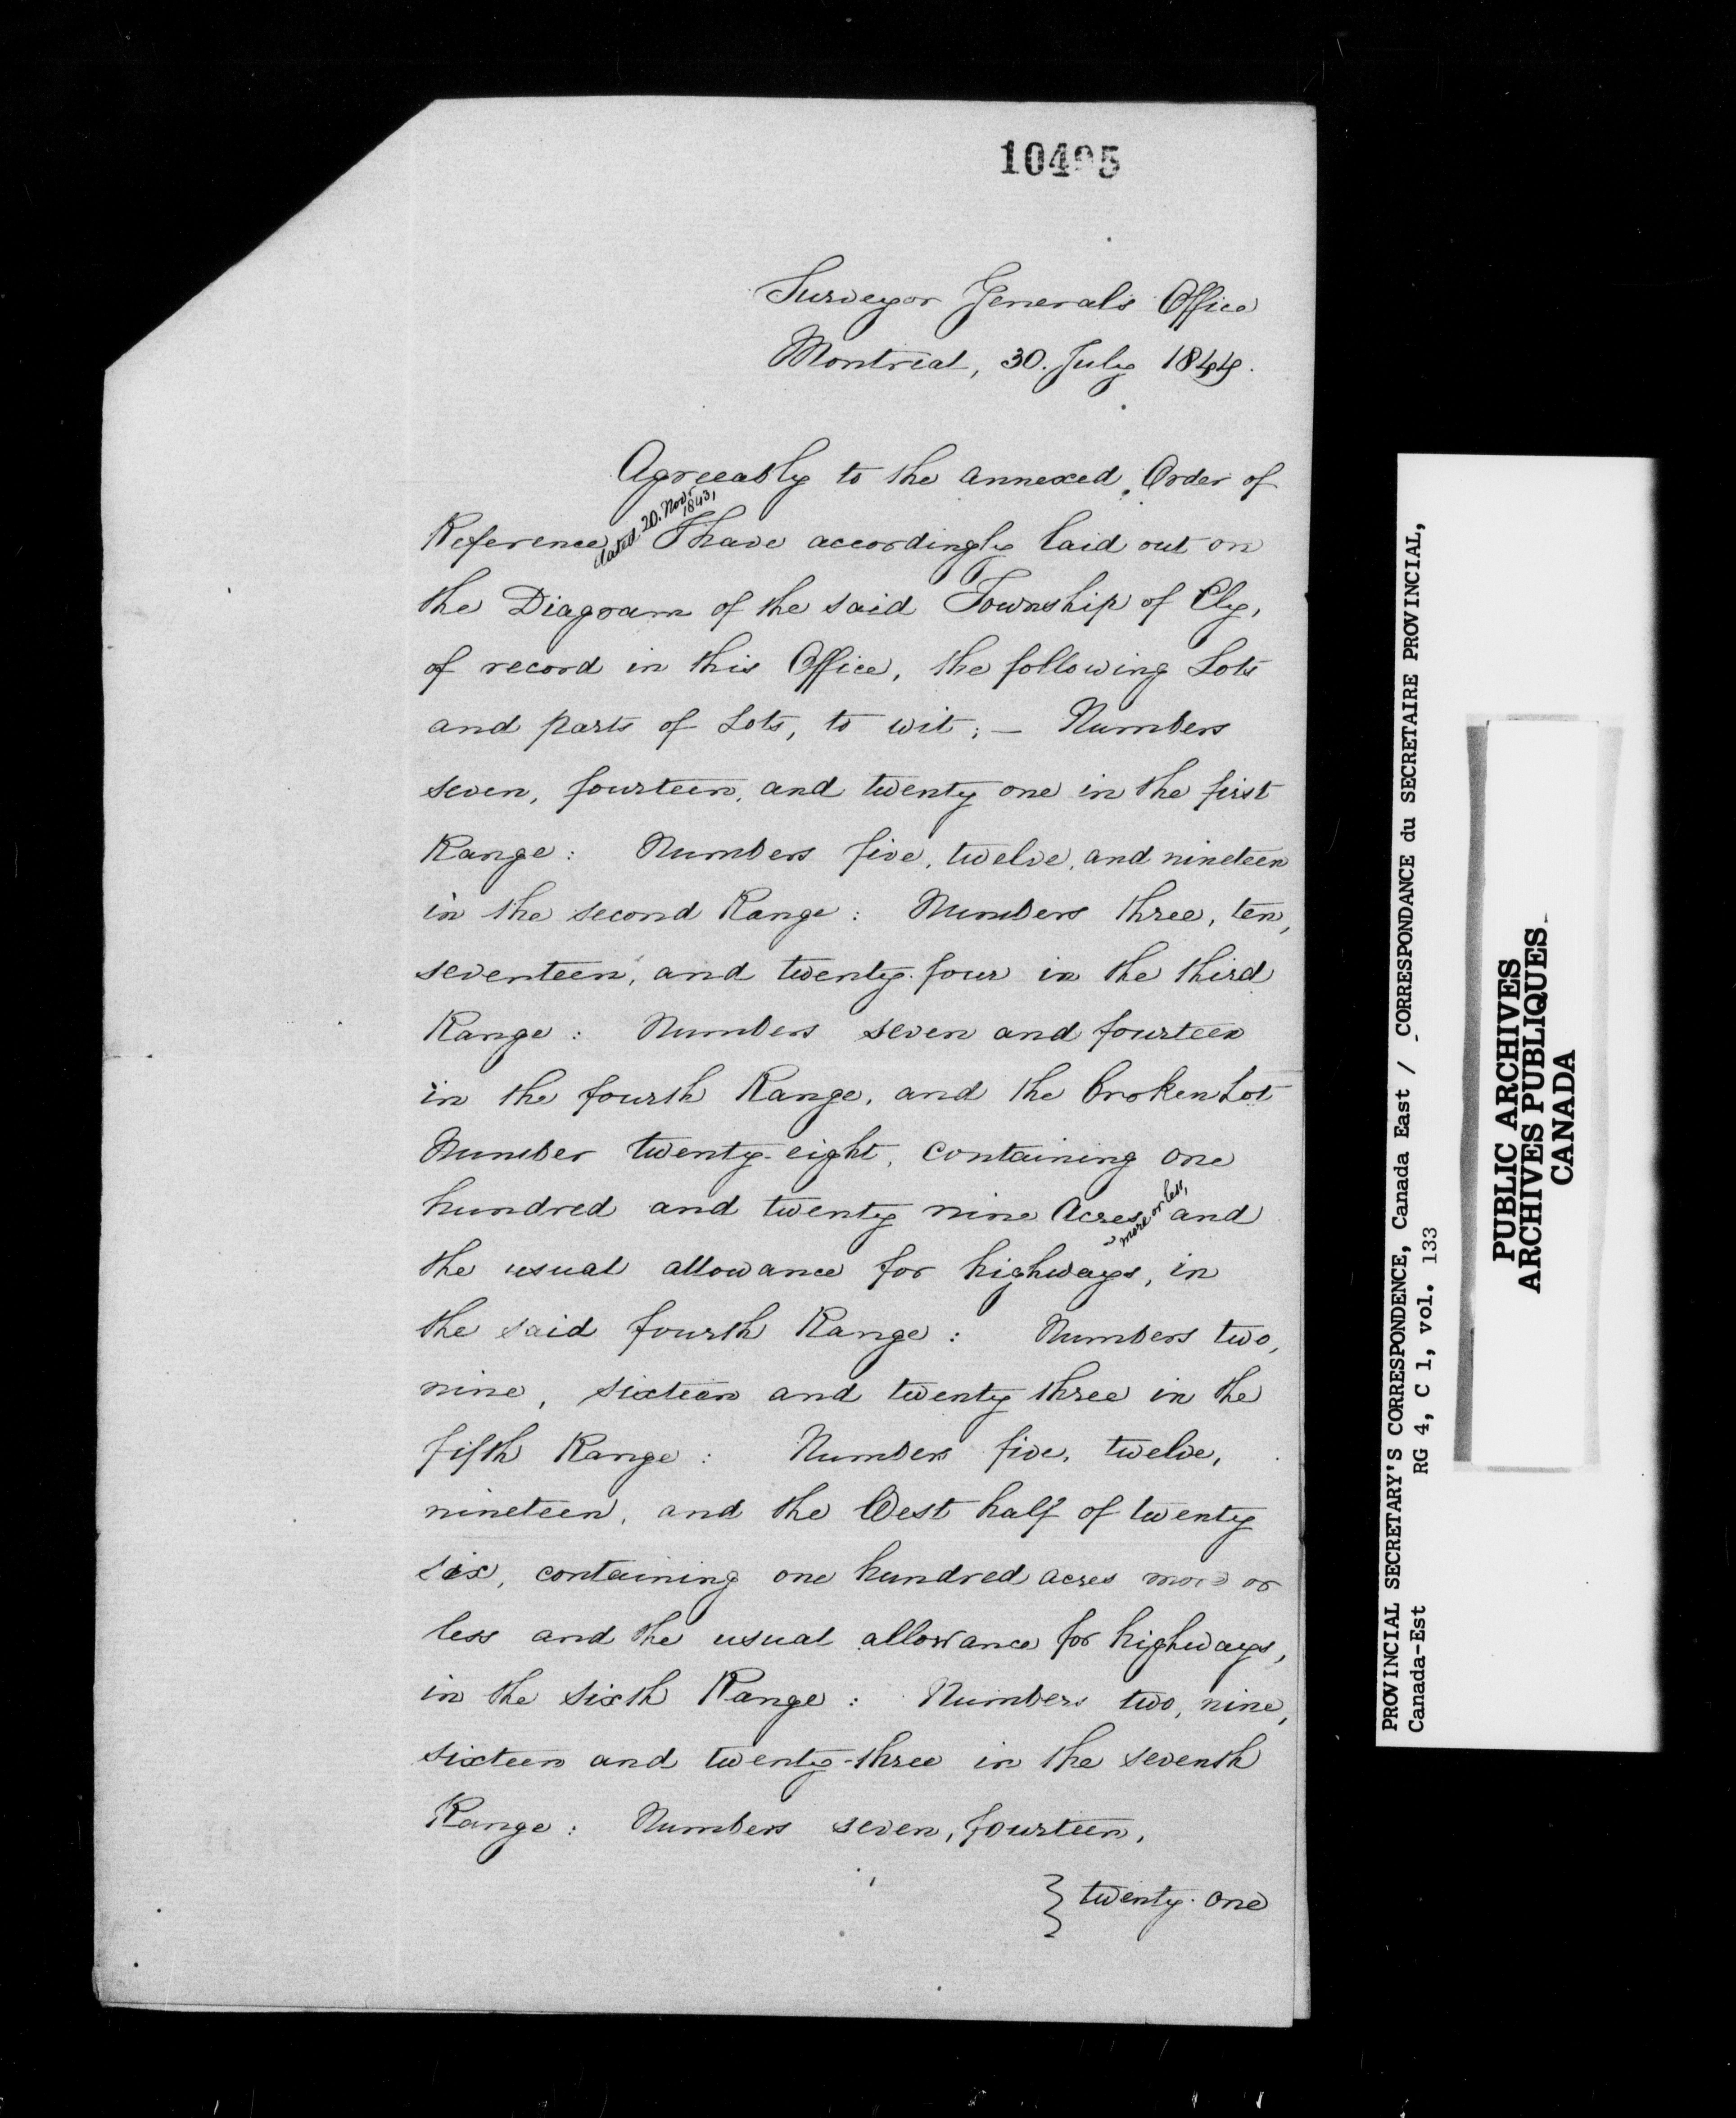 10495
Surveyor General's Office
Montreal, 30. July 1844.
Agreeably to the annexed Order of
Reference, dated 20. Novr 1843, I have accordingly laid out on
the Diagram of the said Township of Ely,
of record in this Office, the following Lots
and parts of Lots, to wit; — Numbers
seven, fourteen, and twenty one in the first
Range: Numbers five, twelve, and nineteen
in the second Range: Numbers three, ten,
seventeen, and twenty-four in the third
Range: Numbers seven and fourteen
in the fourth Range, and the broken Lot
Number twenty-eight, containing one
hundred and twenty nine Acres, more or less, and
the usual allowance for highways, in
the said fourth Range: Numbers two,
nine, sixteen and twenty three in the
fifth Range: Numbers five, twelve,
nineteen, and the West half of twenty
six, containing one hundred acres more or
less and the usual allowance for highways,
in the sixth Range: Numbers two, nine,
sixteen and twenty-three in the seventh
Range: Numbers seven, fourteen,
} twenty-one
PROVINCIAL SECRETARY'S CORRESPONDENCE, Canada East / CORRESPONDANCE du SECRETAIRE PROVINCIAL,
Canada-Est RG 4, C 1, vol. 133
PUBLIC ARCHIVES
ARCHIVES PUBLIQUES
CANADA